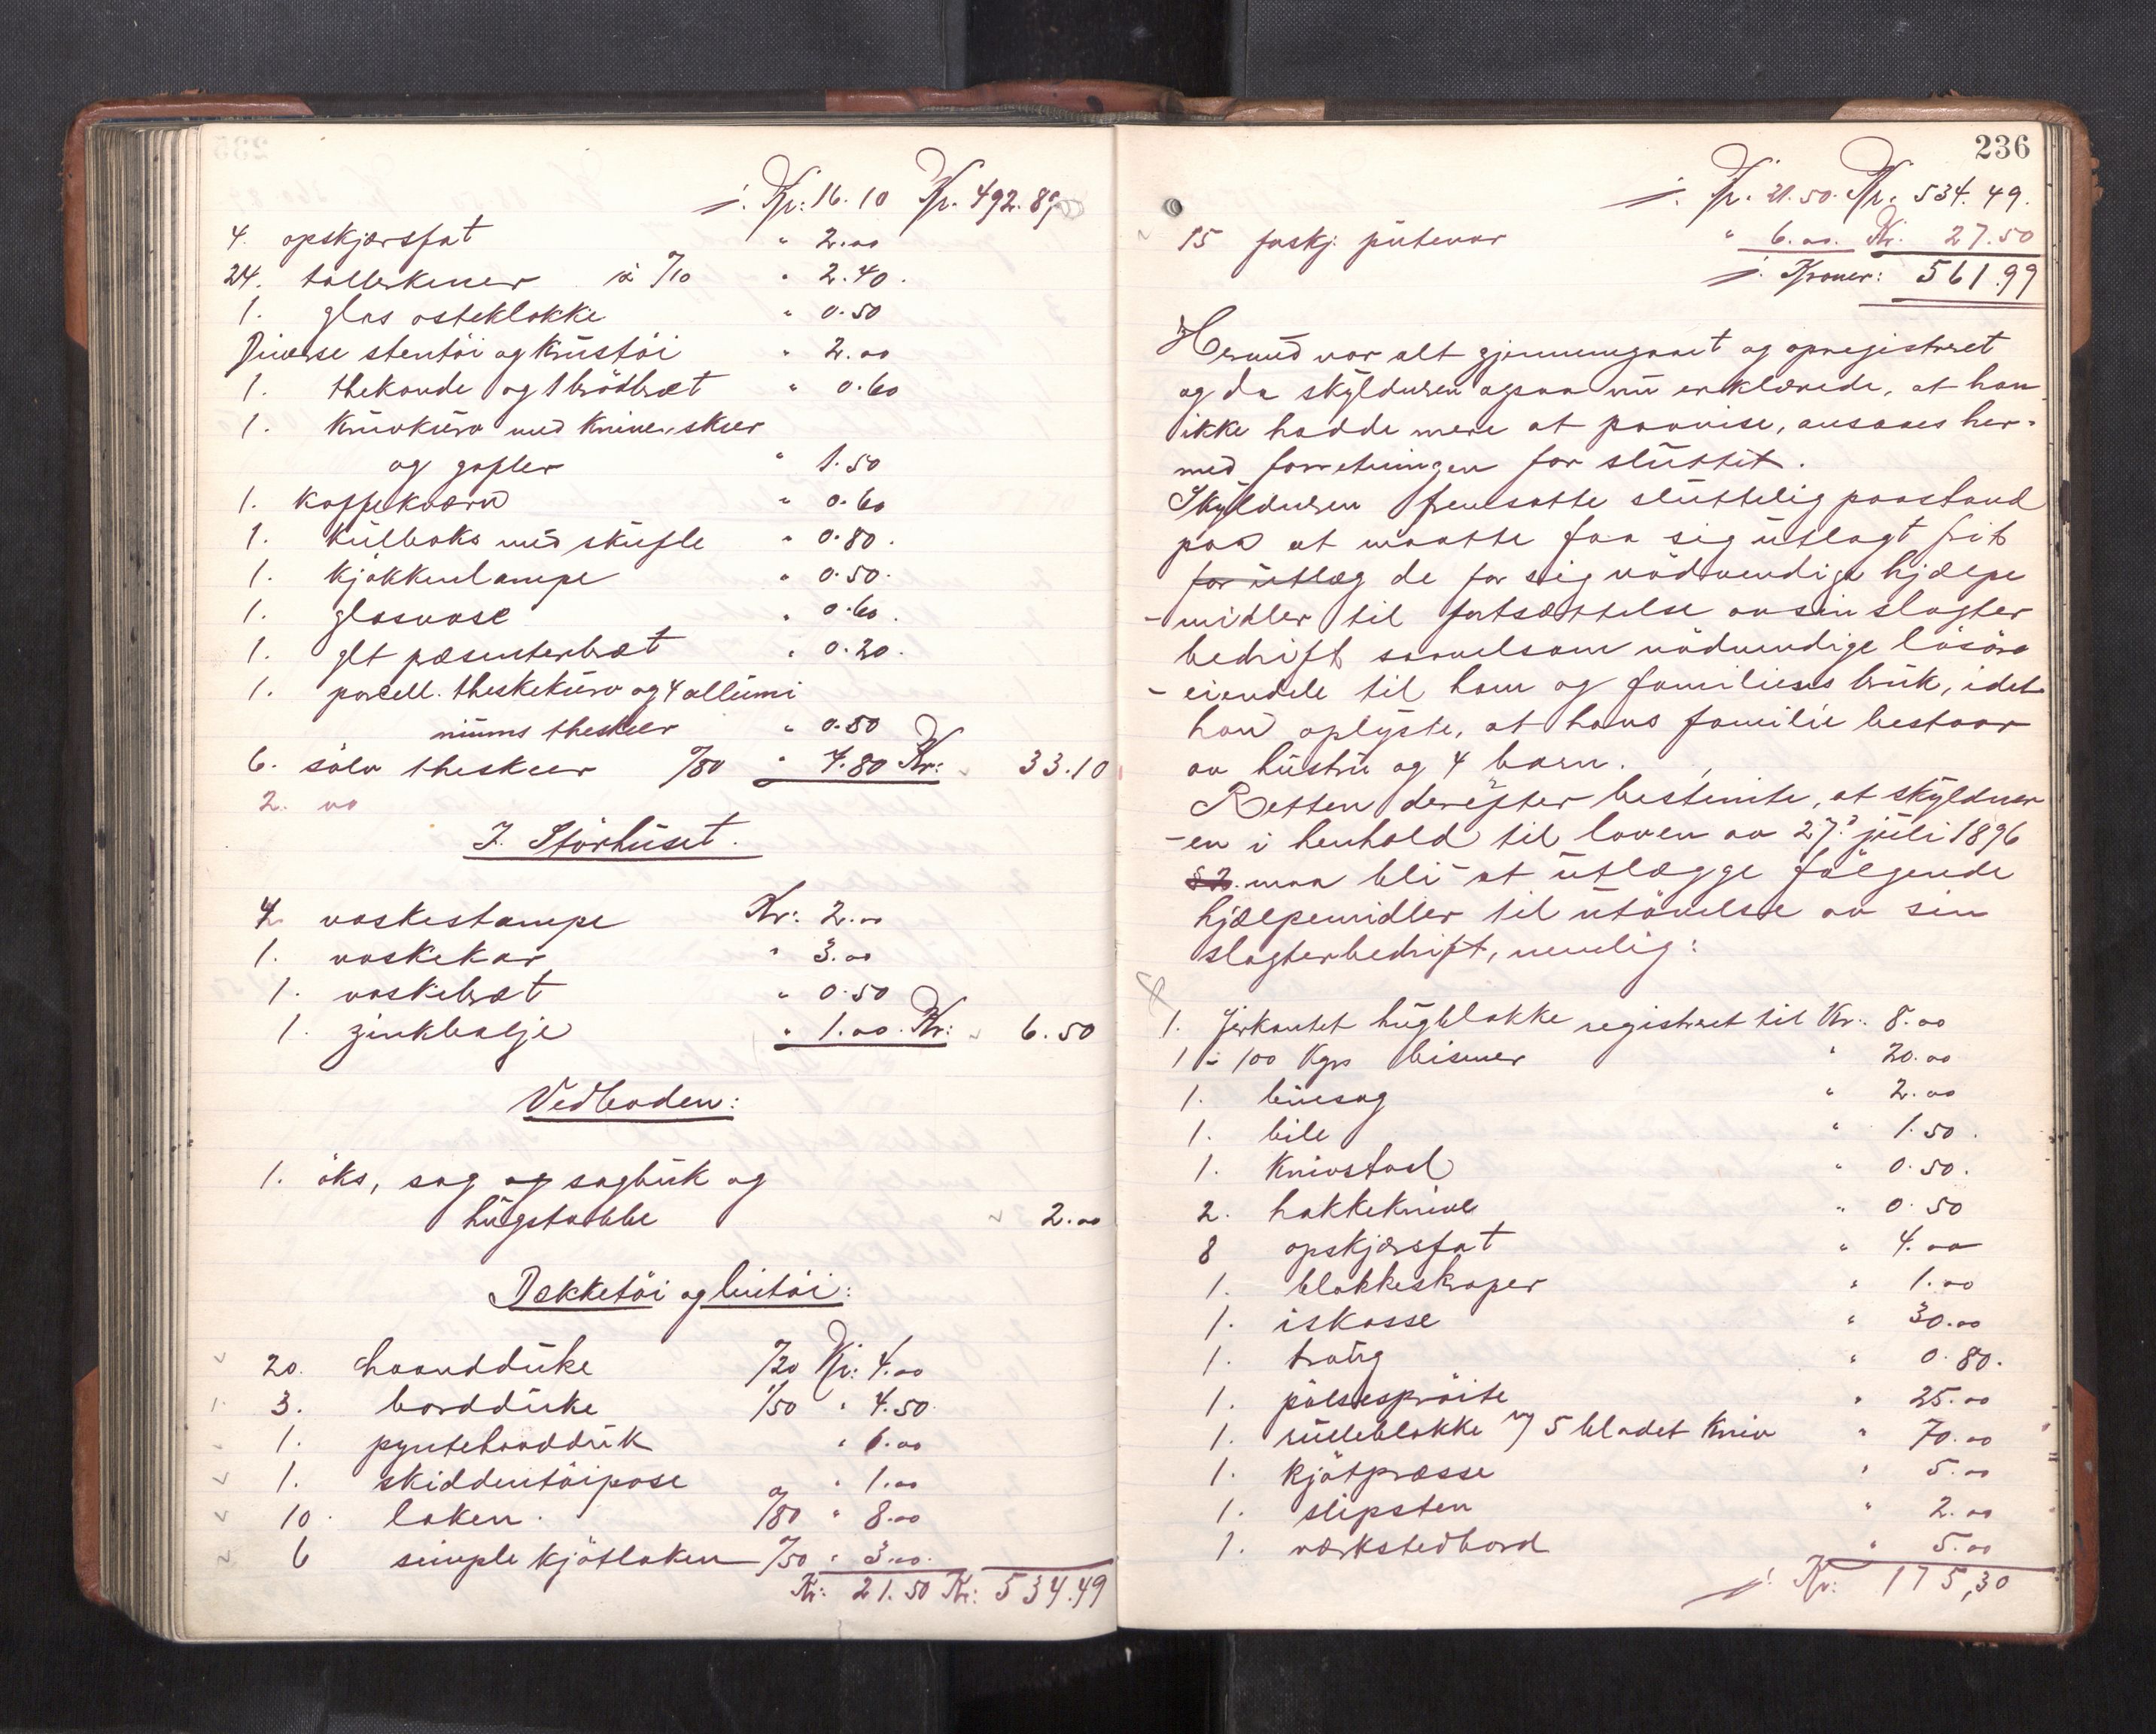 ÷. Kr: 16.10 Kr. 492.89
4. opskjærsfat " 2.00
24. tallerkener à %10 " 2.40.
1. glas osteklokke " 0.50
Diverse stentöi og Krustöi " 2.00
1. thekande og 1 brödbræt " 0.60
1. Knivkurv med Kniver, skeer
og gafler " 1.50
1. Kaffekværn " 0.60
1. Kulboks med skufle " 0.80.
1. Kjøkkenlampe " 0.50.
1. glasvase " 0.60.
1. glt præsenterbræt " 0.20.
1. porcell. theskekurv og 4 allumi
niums theskeer " 0.50
6. sölv theskeer %80 " 4.80 Kr: 33.10
2. va
I. Störhuset.
4. vaskestampe Kr: 2.00
1. vaskekar " 3.00
1. vaskebræt " 0.50
1. zinkbalje " 1.00. Kr: 6.50
Vedboden:
1. öks, sag og sagbuk og
hugstabbe 2.00
Dækketöi og lintöi:
20. haandduke %20 Kr: 4.00
3. bordduke 1/50 " 4.50.
1. pyntehaandduk " 1.00
1. skiddentöipose " 1.00
10. laken. %80 " 8.00
6 simple kjötlaken %50 " 3.00.
Kr: 21.50 Kr: 534.49
236
÷. Kr. 21.50. Kr. 534.49.
15 forskj. putevar " 6.00. Kr. 27.50
÷. Kroner: 561.99
Hermed var alt gjennemgaaet og opregistreret
og da skylduren ogsaa nu erklærede, at han
ikke hadde mere at paavise, ansaaes her-
med forretningen for sluttet.
Skylduren fremsatte sluttelig paastand
paa at maatte faa sig utlagt frit
for utlæg de for sig nödvendige hjælpe
-midler til fortsættelse av sin slagter
bedrift saavelsom nödvendige lösöre
-eiendele til ham og familiens bruk, idet
han oplyste, at hans familie bestaar
av hustru og 4 barn.
Retten derefter bestemte, at skyldner
-en i henhold til loven av 27de juli 1896
§ 2. maa bli at utlægge følgende
hjælpemidler til utövelse av sin
slagterbedrift, nemlig:
1. firkantet hugblokke registreret til Kr: 8.00
1 - 100 Kgrs bismer " 20.00
1. buesag " 2.00
1. bile " 1.50.
1. Knivstaal " 0.50.
2. hakkeknive " 0.50
8 opskjærsfat " 4.00
1. blokkeskraper " 1.00
1. iskasse " 30.00
1. traug " 0.80.
1. pölsespröite " 25.00
1. rulleblokke m/ 5 bladet Kniv " 70.00
1. Kjötpræsse " 5.00
1. slipsten " 2.00
1. værkstedbord " 5.00
÷. Kr: 175,30